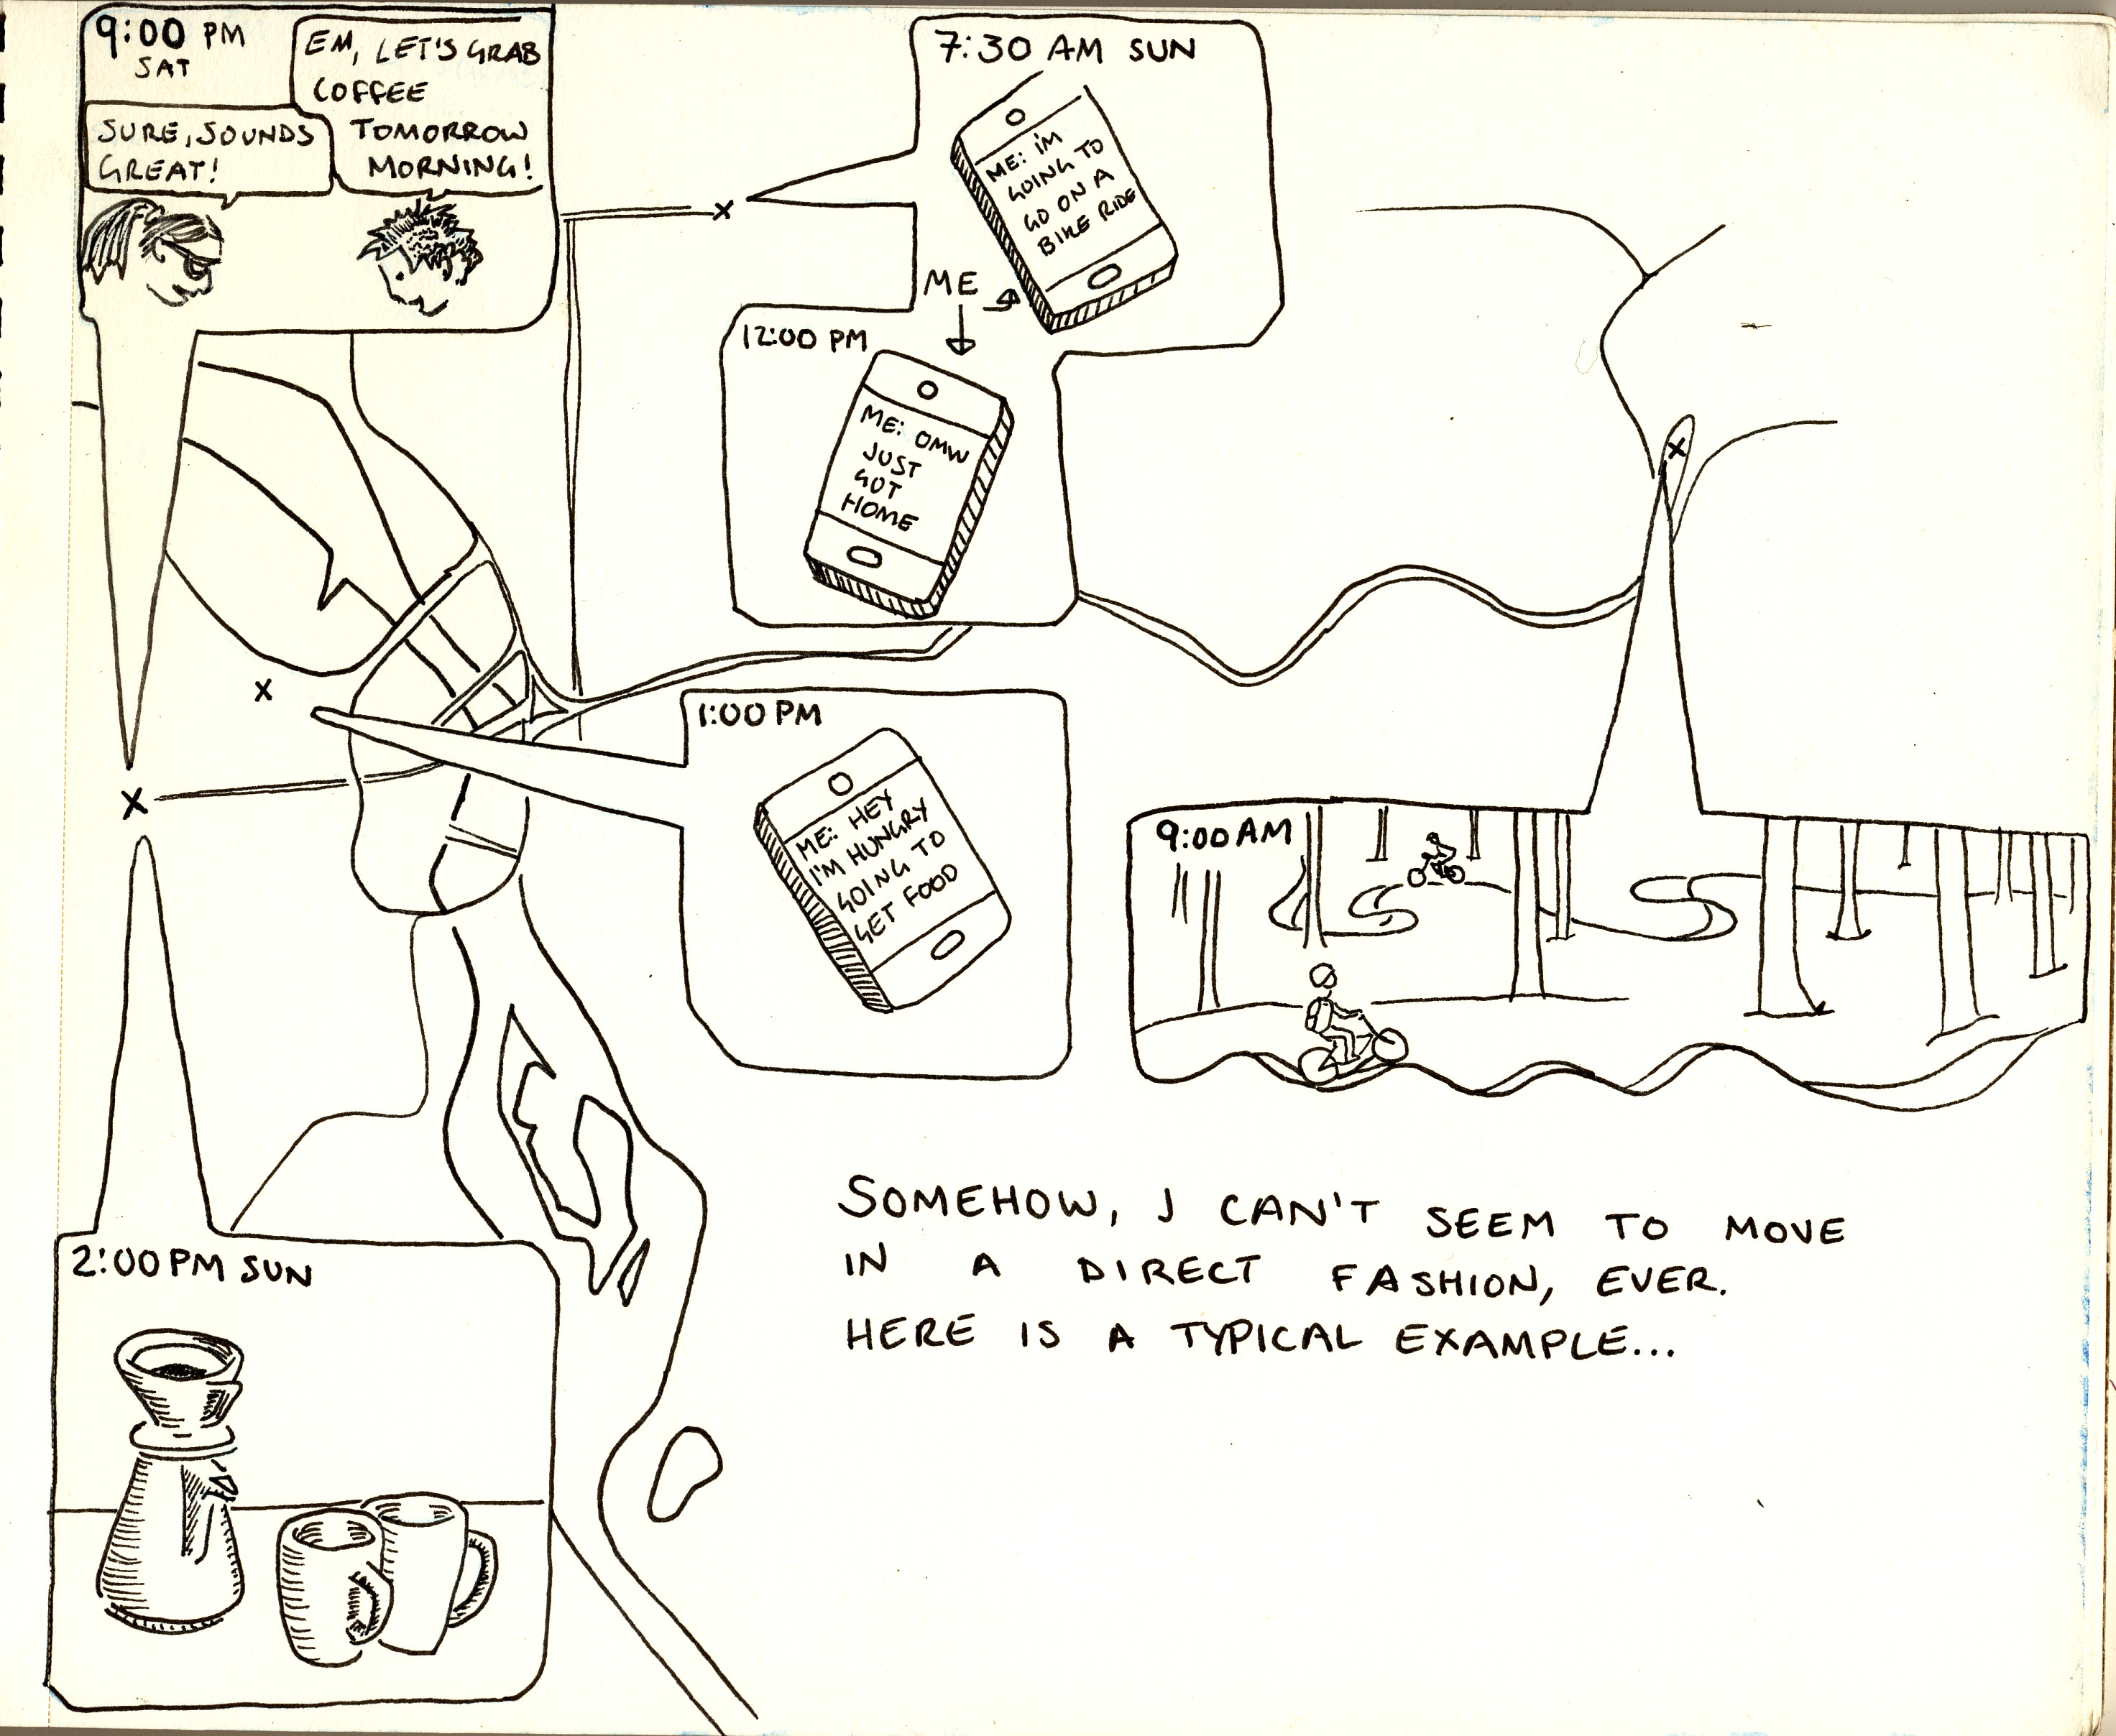 9:00 PM
SAT
EM, LET'S GRAB
COFFEE
TOMORROW
MORNING!
SURE, SOUNDS
GREAT!
7:30 AM SUN
ME: I'M
GOING TO
GO ON A
BIKE RIDE
ME
12:00 PM
ME: OMW
JUST
GOT
HOME
X
X
X
X
1:00 PM
ME: HEY
I'M HUNGRY
GOING TO
GET FOOD
9:00 AM
2:00 PM SUN
SOMEHOW, I CAN'T SEEM TO MOVE
IN A DIRECT FASHION, EVER.
HERE IS A TYPICAL EXAMPLE...